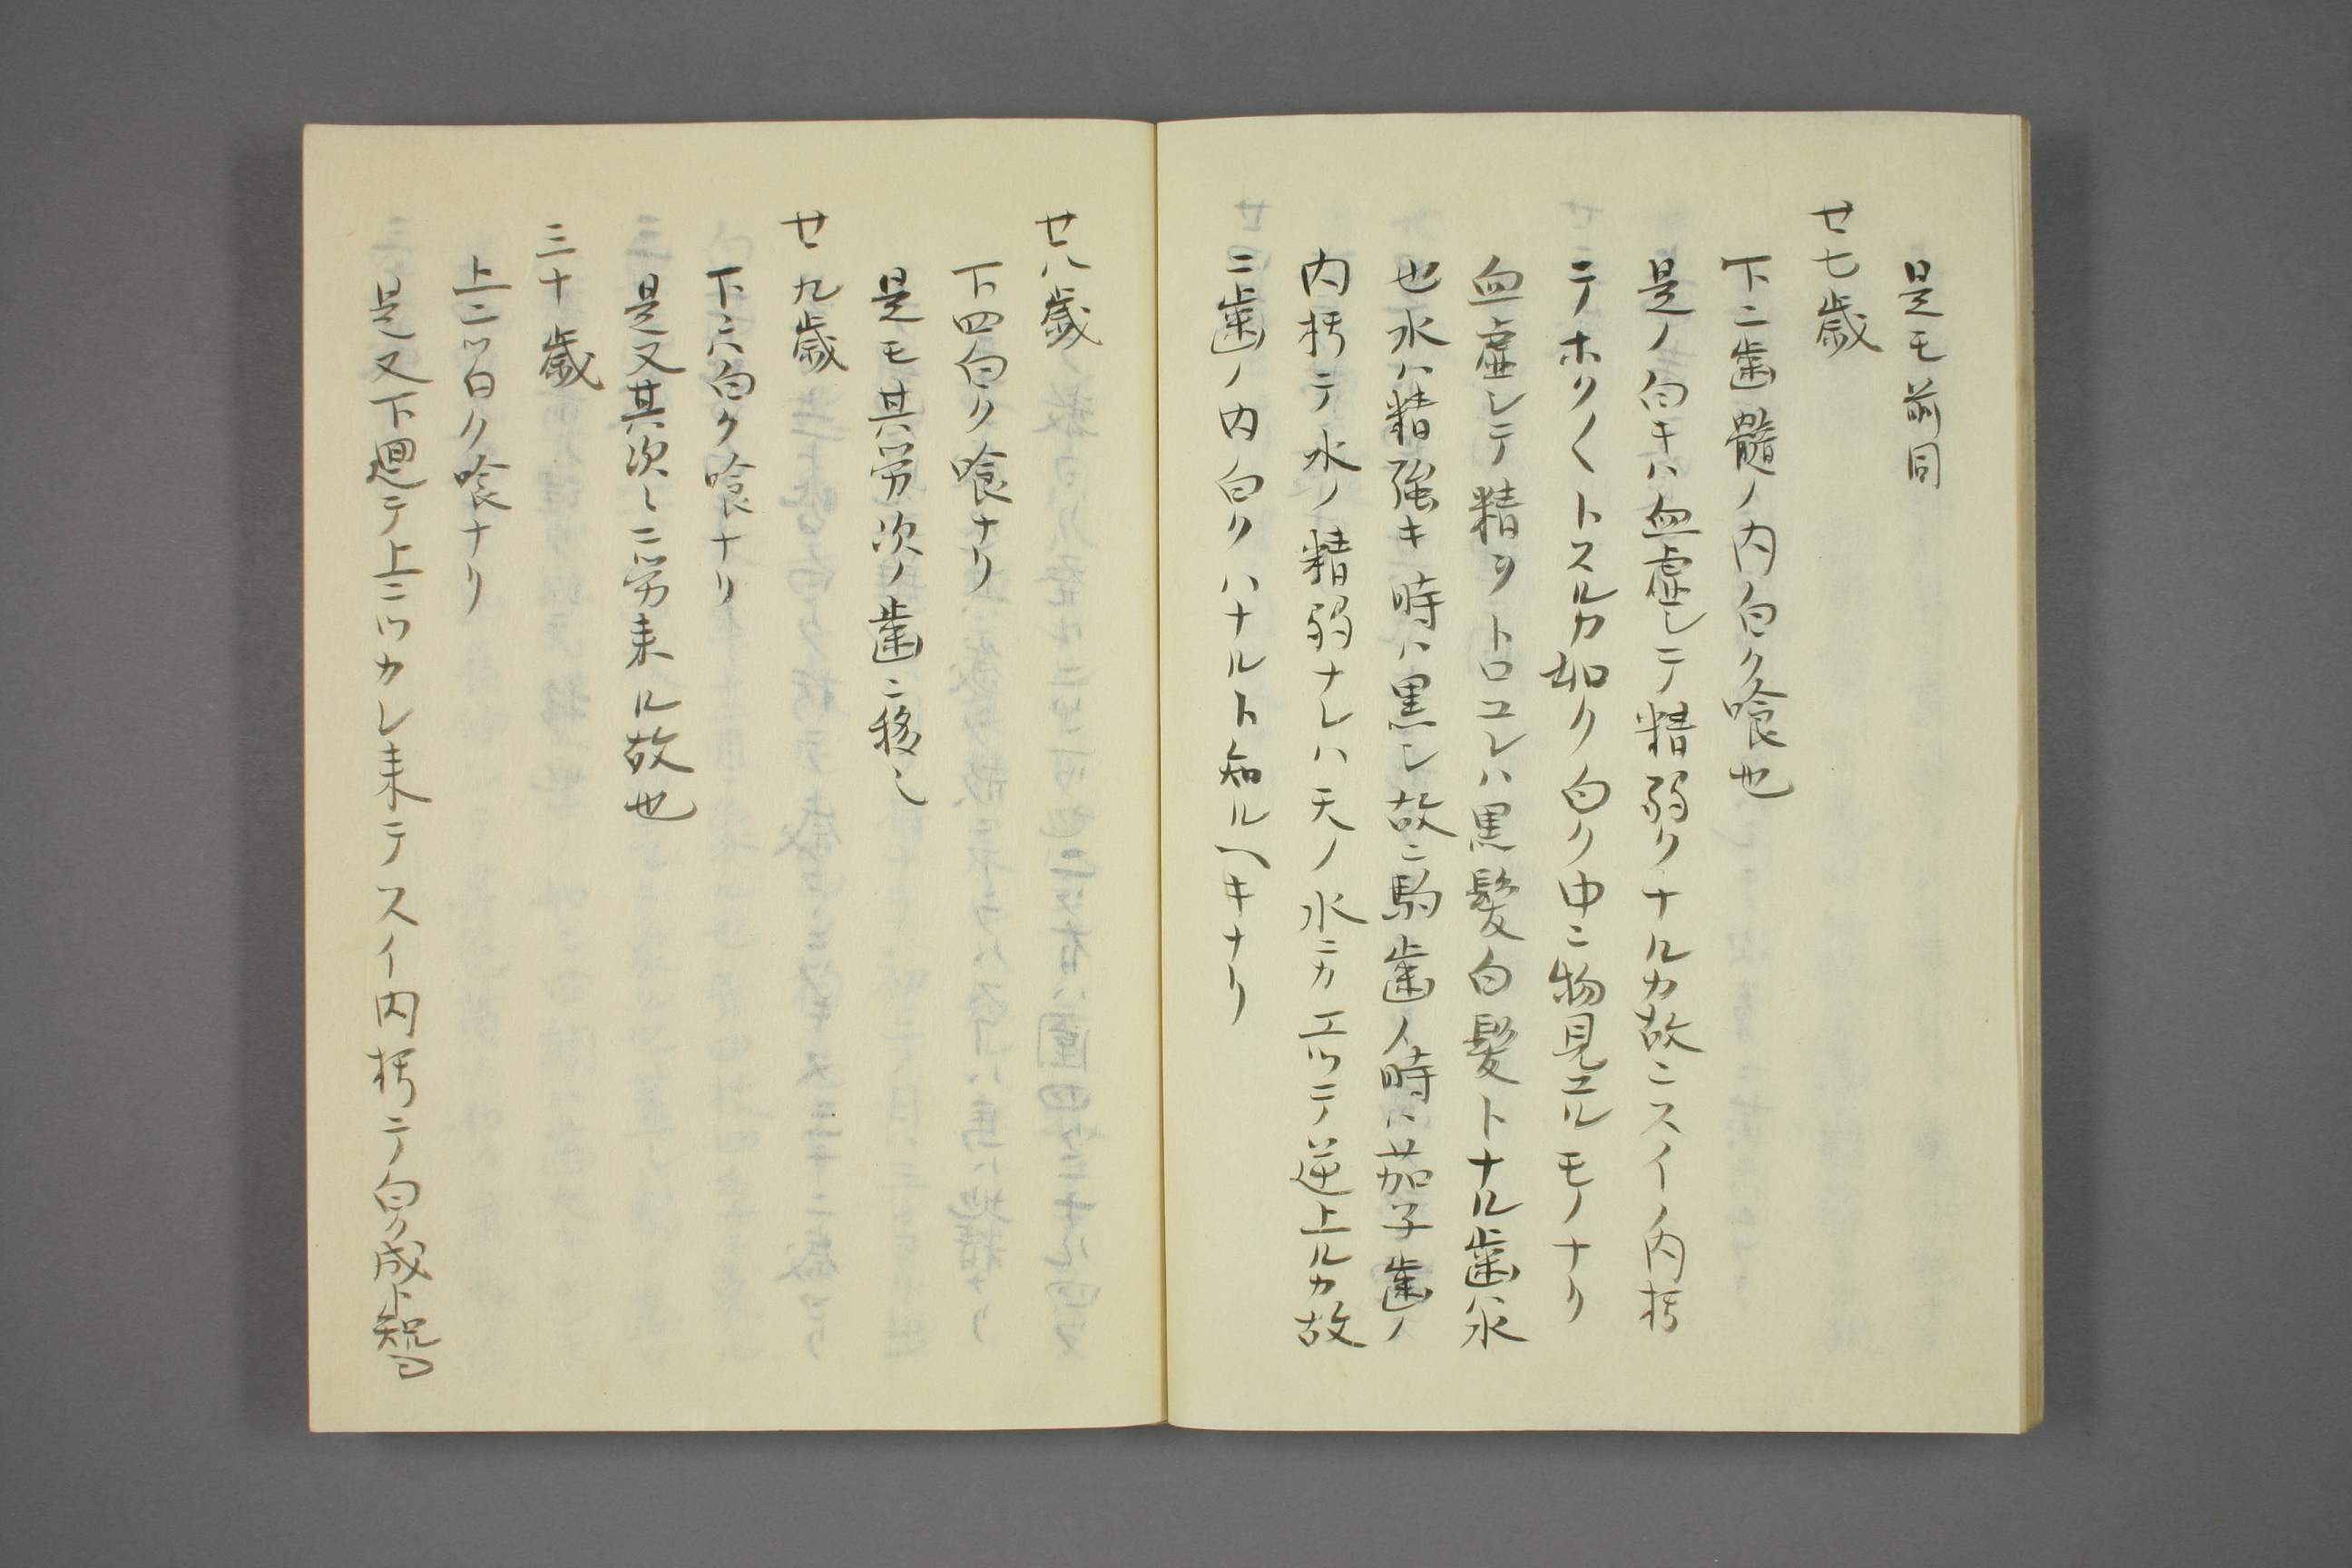 是モ前同
廿七歳
下二歯髓ノ内白ク喰也
是ノ白キハ血虚シテ精弱クナルカ故ニスイノ内朽
テホクホクトスルカ如ク白ク中ニ物見エルモノナリ
血虚シテ精ヲトロユレハ黒髪白髪トナル歯ハ水
也水ハ精強キ時ハ黒シ故ニ駒歯ノ時ハ茄子歯ノ
内朽テ水ノ精弱ナレハ天ノ水ニカエツテ逆上ルカ故
ニ歯ノ内白クハナルト知ルヘキナリ
廿八歳
下四白ク喰ナリ
是モ其労次ノ歯ニ移シ
廿九歳
下六白ク喰ナリ
是又其次シニ労来ル故也
三十歳
上二ツ白ク喰ナリ
是又下廻テ上二ツカレ来テスイ内朽テ白ク成ト知ヘシ